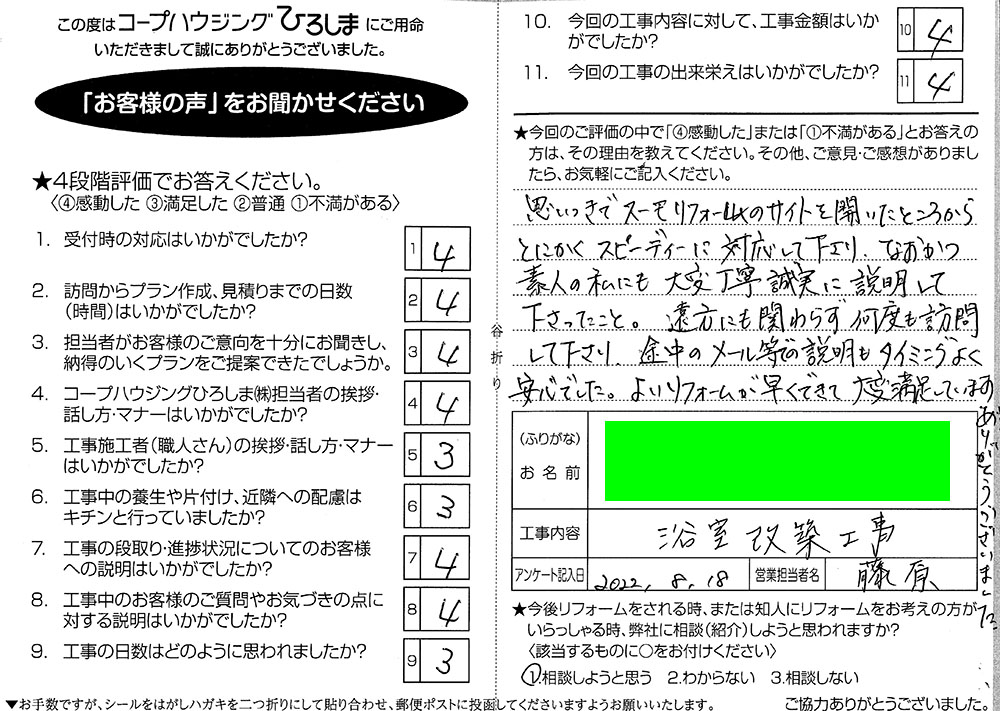 この度はコープハウジングひろしまにご用命
いただきまして誠にありがとうございました。
「お客様の声」をお聞かせください
★4段階評価でお答えください。
〈④感動した ③満足した ②普通 ①不満がある〉
1. 受付時の対応はいかがでしたか?
1 4
2. 訪問からプラン作成、見積りまでの日数
(時間)はいかがでしたか?
2 4
3. 担当者がお客様のご意向を十分にお聞きし、
納得のいくプランをご提案できたでしょうか。
3 4
4. コープハウジングひろしま㈱担当者の挨拶・
話し方・マナーはいかがでしたか?
4 4
5. 工事施工者(職人さん)の挨拶・話し方・マナー
はいかがでしたか?
5 3
6. 工事中の養生や片付け、近隣への配慮は
キチンと行っていましたか?
6 3
7. 工事の段取り・進捗状況についてのお客様
への説明はいかがでしたか?
7 4
8. 工事中のお客様のご質問やお気づきの点に
対する説明はいかがでしたか?
8 4
9. 工事の日数はどのように思われましたか?
9 3
▼お手数ですが、シールをはがしハガキを二つ折りにして貼り合わせ、郵便ポストに投函してくださいますようお願いいたします。
谷折り
10. 今回の工事内容に対して、工事金額はいか
がでしたか?
10 4
11. 今回の工事の出来栄えはいかがでしたか?
11 4
★今回のご評価の中で「④感動した」または「①不満がある」とお答えの
方は、その理由を教えてください。その他、ご意見・ご感想がありまし
たら、お気軽にご記入ください。
思いつきでスーモリフォームのサイトを開いたところから
とにかくスピーディーに対応して下さり、なおかつ
素人の私にも大変丁寧誠実に説明して
下さったこと。遠方にも関わらず何度も訪問
して下さり、途中のメール等での説明もタイミングよく
安心でした。よいリフォームが早くできて大変満足しています
ありがとうございました
(ふりがな)
お名前
工事内容 浴室改築工事
アンケート記入日 2022, 8, 18 営業担当者名 藤原
★今後リフォームをされる時、または知人にリフォームをお考えの方が
いらっしゃる時、弊社に相談(紹介)しようと思われますか?
〈該当するものに○をお付けください〉
1.相談しようと思う 2.わからない 3.相談しない
ご協力ありがとうございました。